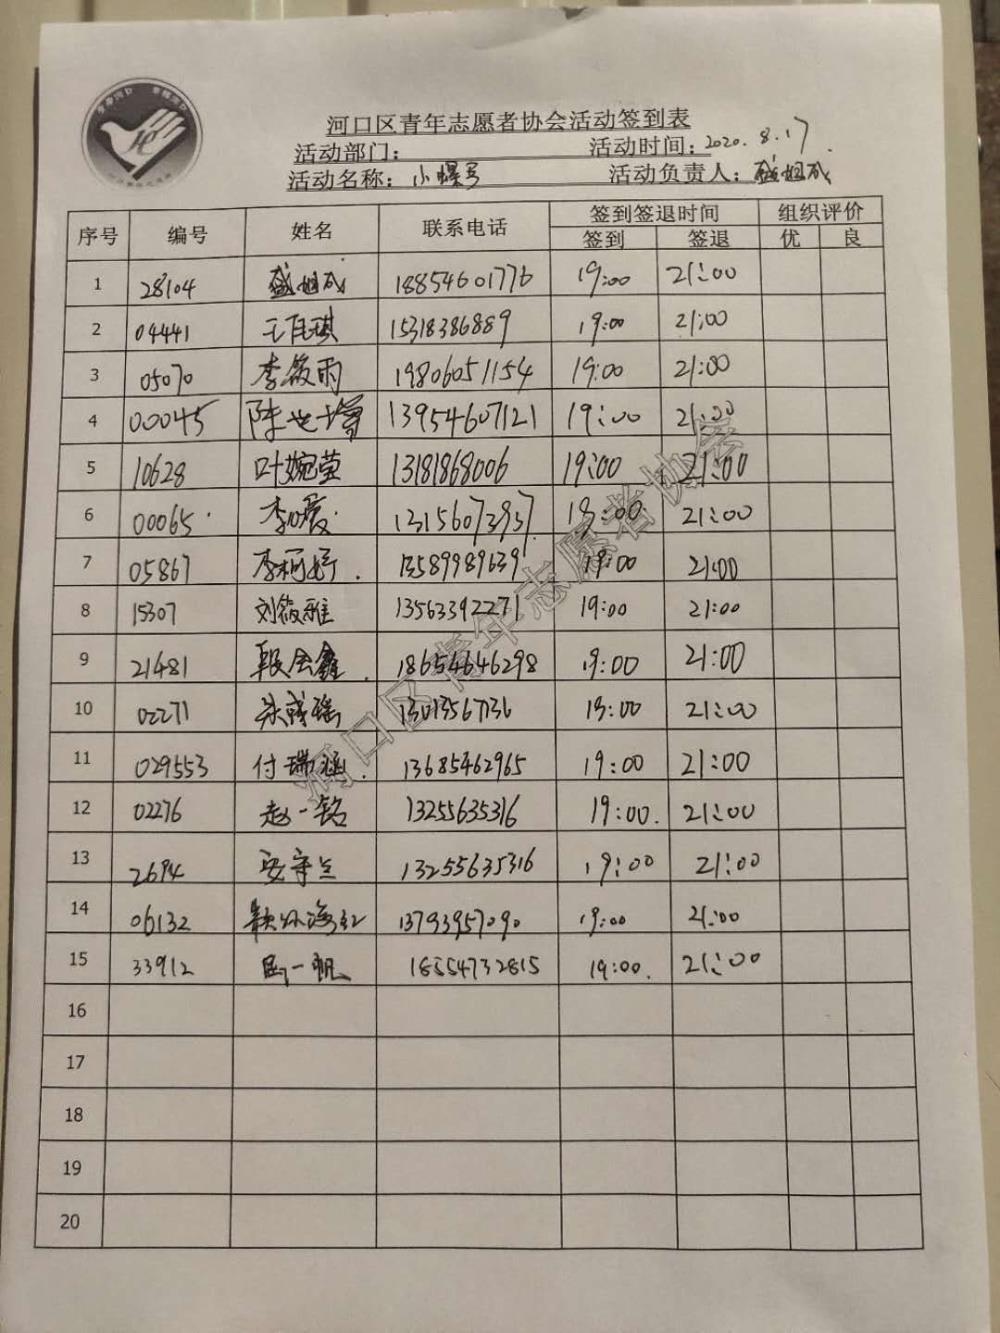 河口区青年志愿者协会活动签到表
活动部门： 活动时间：2020.8.17
活动名称：小螺号 活动负责人：盛旭成
序号 编号 姓名 联系电话 签到签退时间 组织评价
签到 签退 优 良
1 28104 盛旭成 18854601776 19:00 21:00
2 04441 王佳琪 15318386889 19:00 21:00
3 05070 李筱雨 19806051154 19:00 21:00
4 00045 陈 13954607121 19:00 21:00
5 10628 叶婉莹 13181868006 19:00 21:00
6 00065 李 13156073937 19:00 21:00
7 05867 李柯婷 13589989639 19:00 21:00
8 15307 刘筱雅 13563392271 19:00 21:00
9 21481 段会鑫 18654646298 19:00 21:00
10 02271 13013567136 19:00 21:00
11 029553 付瑞涵 13685462965 19:00 21:00
12 02276 赵一铭 13255635316 19:00 21:00
13 2694 安守兰 13255635316 19:00 21:00
14 06132 13793957090 19:00 21:00
15 33912 一帆 18554732815 19:00 21:00
16
17
18
19
20
河口区青年志愿者协会